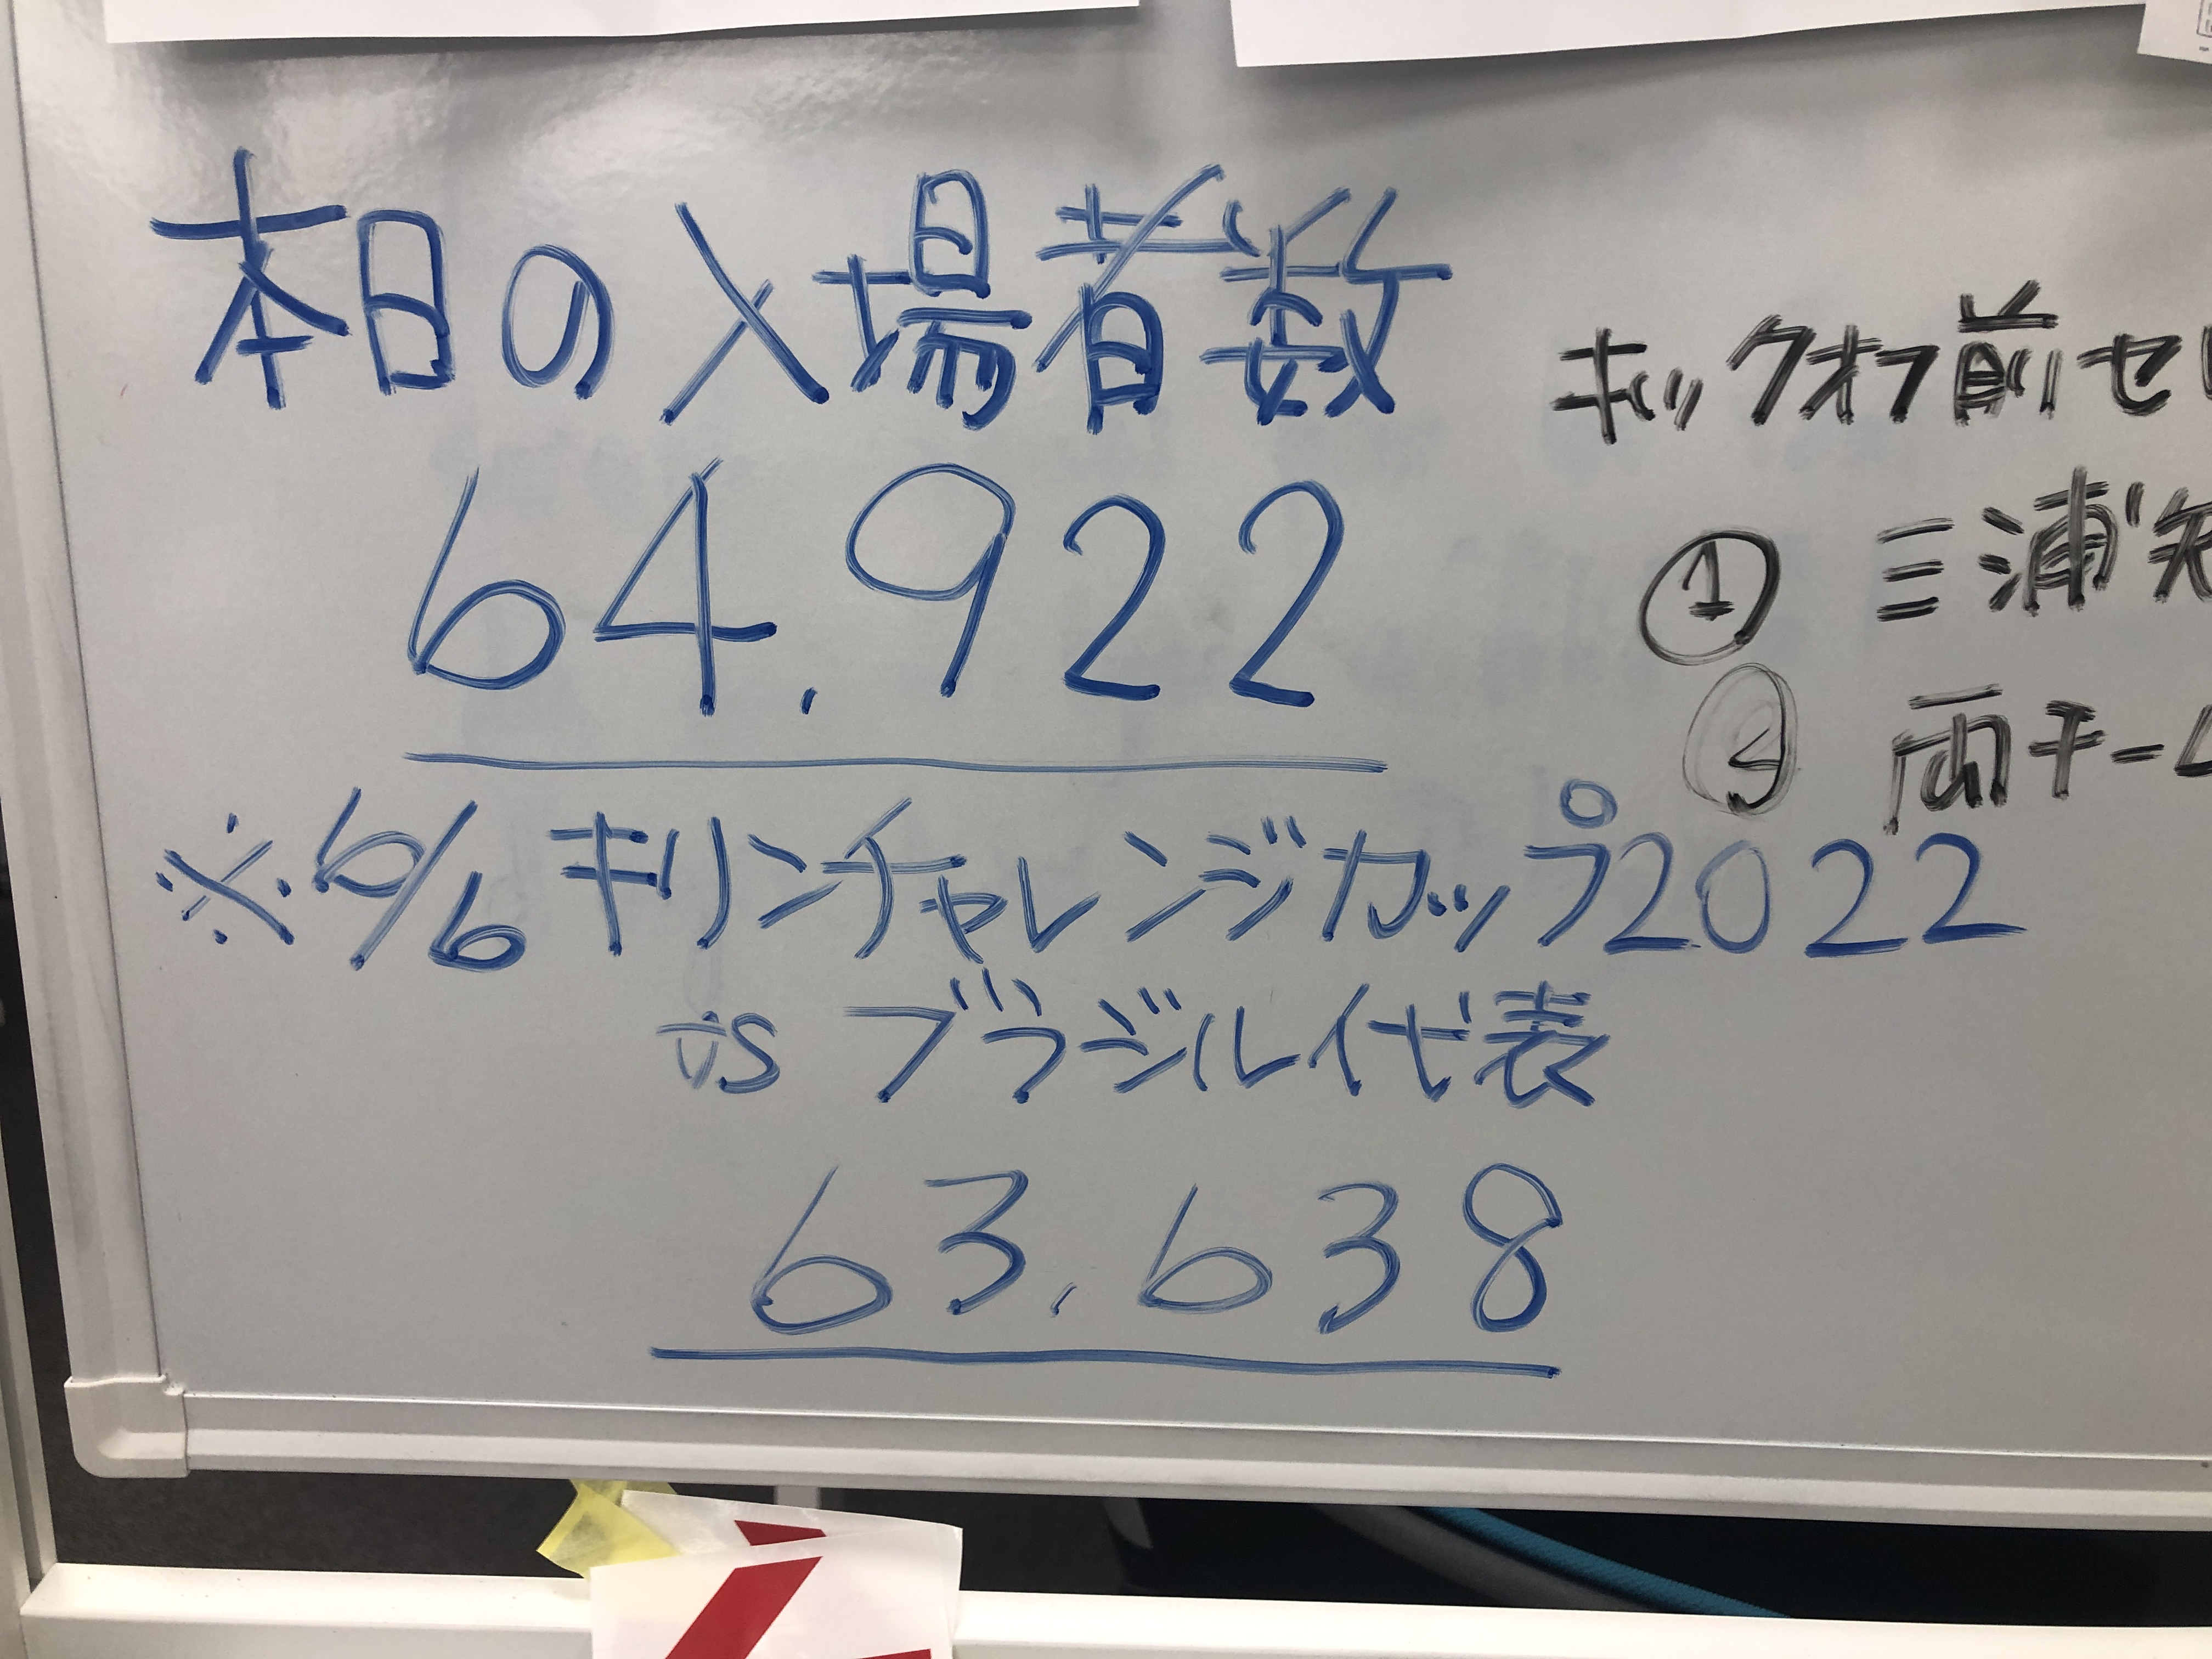 本日の入場者数
64,922
※6/6 キリンチャレンジカップ2022
vs ブラジル代表
63,638
キックオフ前セ
① 三浦知
② 両チーム